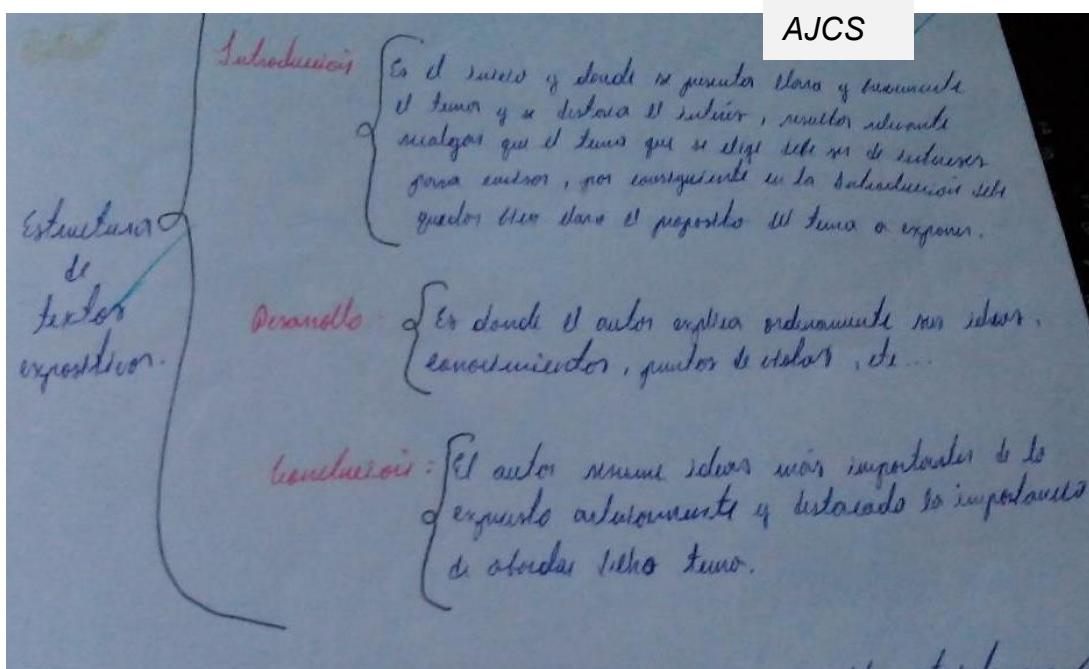 AJCS
Introducción
Es el inicio y donde se presenta clara y brevemente
el tema y se destaca el interés, resulta relevante
recalcar que el tema que se elige debe ser de intereses
para emisor, por consiguiente en la Introducción debe
quedar bien claro el proposito del tema a exponer.
Estructura
de
textos
expositivos.
Desarrollo:
Es donde el autor explica ordenamente sus ideas,
conocimientos, puntos de vistas, etc...
Conclusión:
El autor resume ideas más importantes de lo
expuesto anteriormente y destacado la importancia
de abordar dicho tema.